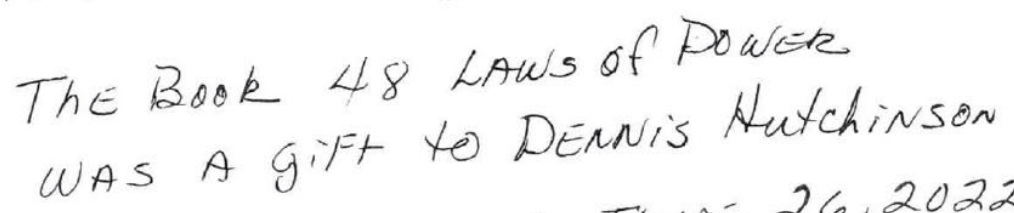 ThE Book 48 LAWS of POWER
WAS A giFt to DENNiS HutchiNSON
26, 2022